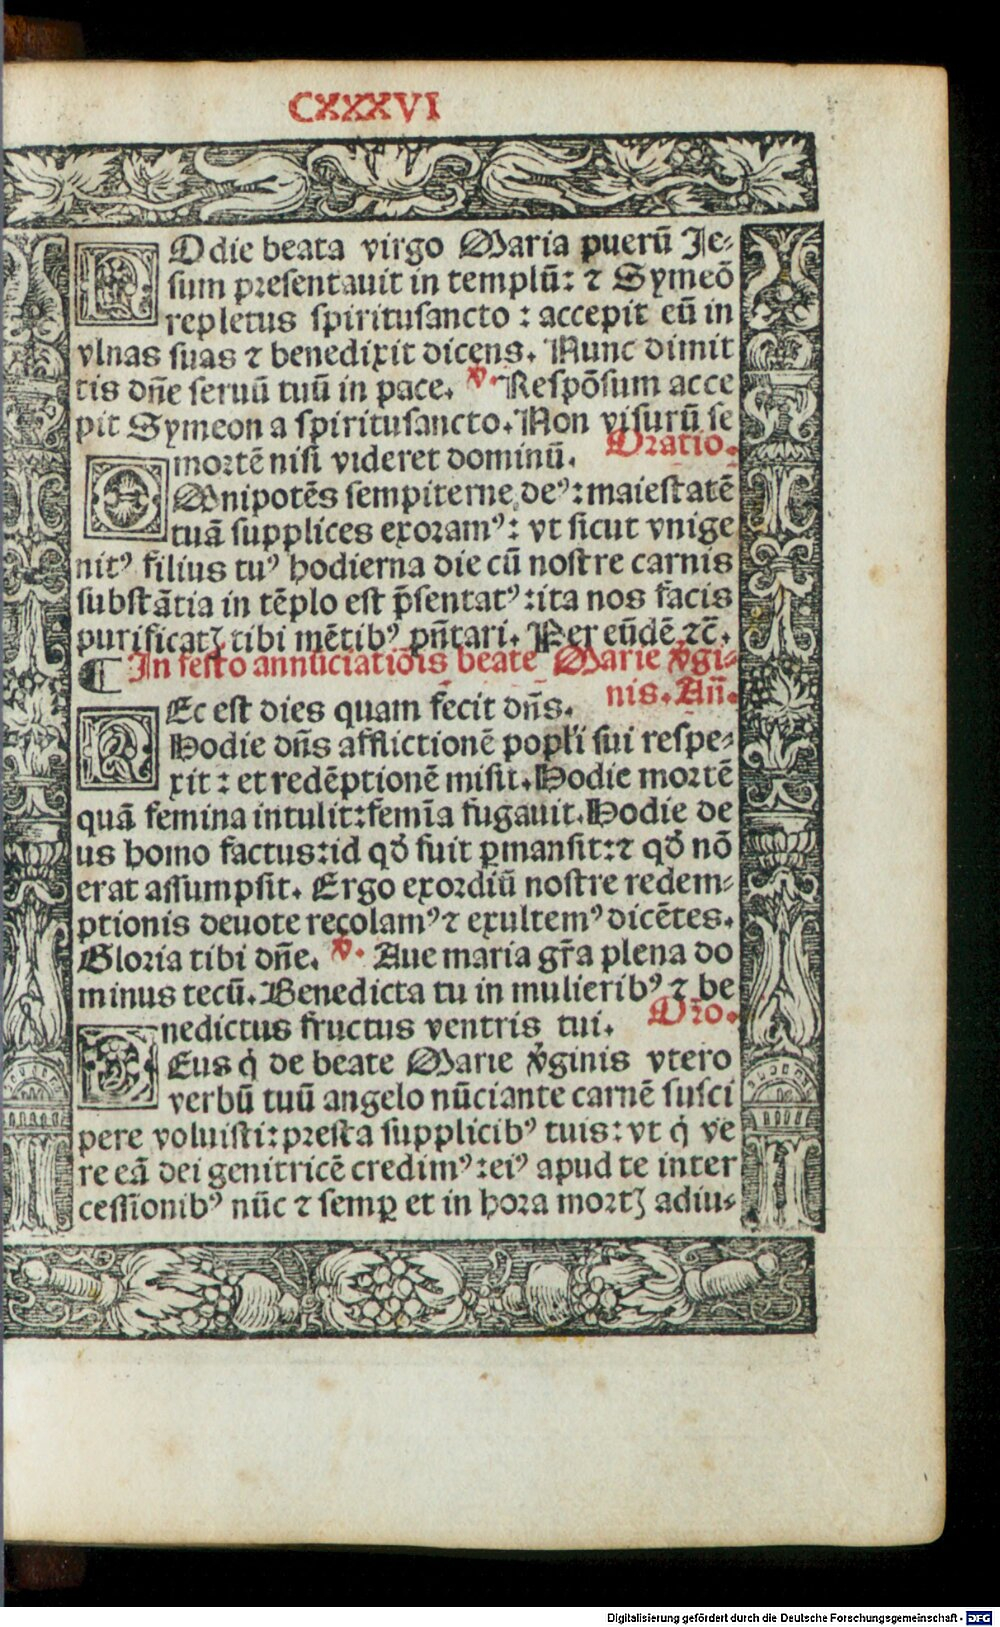 CXXXVI
HOdie beata virgo Maria puerū Je⸗
sum presentauit in templū: ⁊ Symeō
repletus spiritusancto : accepit eū in
vlnas suas ⁊ benedixit dicens. Nunc dimit
tis dn̄e seruū tuū in pace. ℣. Respōsum acce
pit Symeon a spiritusancto. Non visurū se
mortē nisi videret dominū. Oratio.
OMnipotēs sempiterne deꝰ: maiestatē
tuā supplices exoramꝰ: vt sicut vnige
nitꝰ filius tuꝰ hodierna die cū nostre carnis
substātia in tēplo est p̄sentatꝰ: ita nos facis
purificatꝭ tibi mētibꝰ pn̄tari. Per eūdē ⁊c̄.
¶ In festo annūciatiōis beate Marie v̓gi⸗
nis. An̄.
HEc est dies quam fecit dn̄s.
Hodie dn̄s afflictionē popl̓i sui respe⸗
xit : et redēptionē misit. Hodie mortē
quā femina intulit: femīa fugauit. Hodie de
us homo factus: id qđ fuit ꝑmansit: ⁊ qđ nō
erat assumpsit. Ergo exordiū nostre redem⸗
ptionis deuote recolamꝰ ⁊ exultemꝰ dicētes.
Gloria tibi dn̄e. ℣. Aue maria gr̄a plena do
minus tecū. Benedicta tu in mulieribꝰ ⁊ be
nedictus fructus ventris tui. Oro̅.
DEus q̓ de beate Marie v̓ginis vtero
verbū tuū angelo nūciante carnē susci
pere voluisti: presta supplicibꝰ tuis: vt q̓ ve
re eā dei genitricē credimꝰ: eiꝰ apud te inter
cessionibꝰ nūc ⁊ semꝑ et in hora mortꝭ adiu⸗
Digitalisierung gefördert durch die Deutsche Forschungsgemeinschaft - DFG